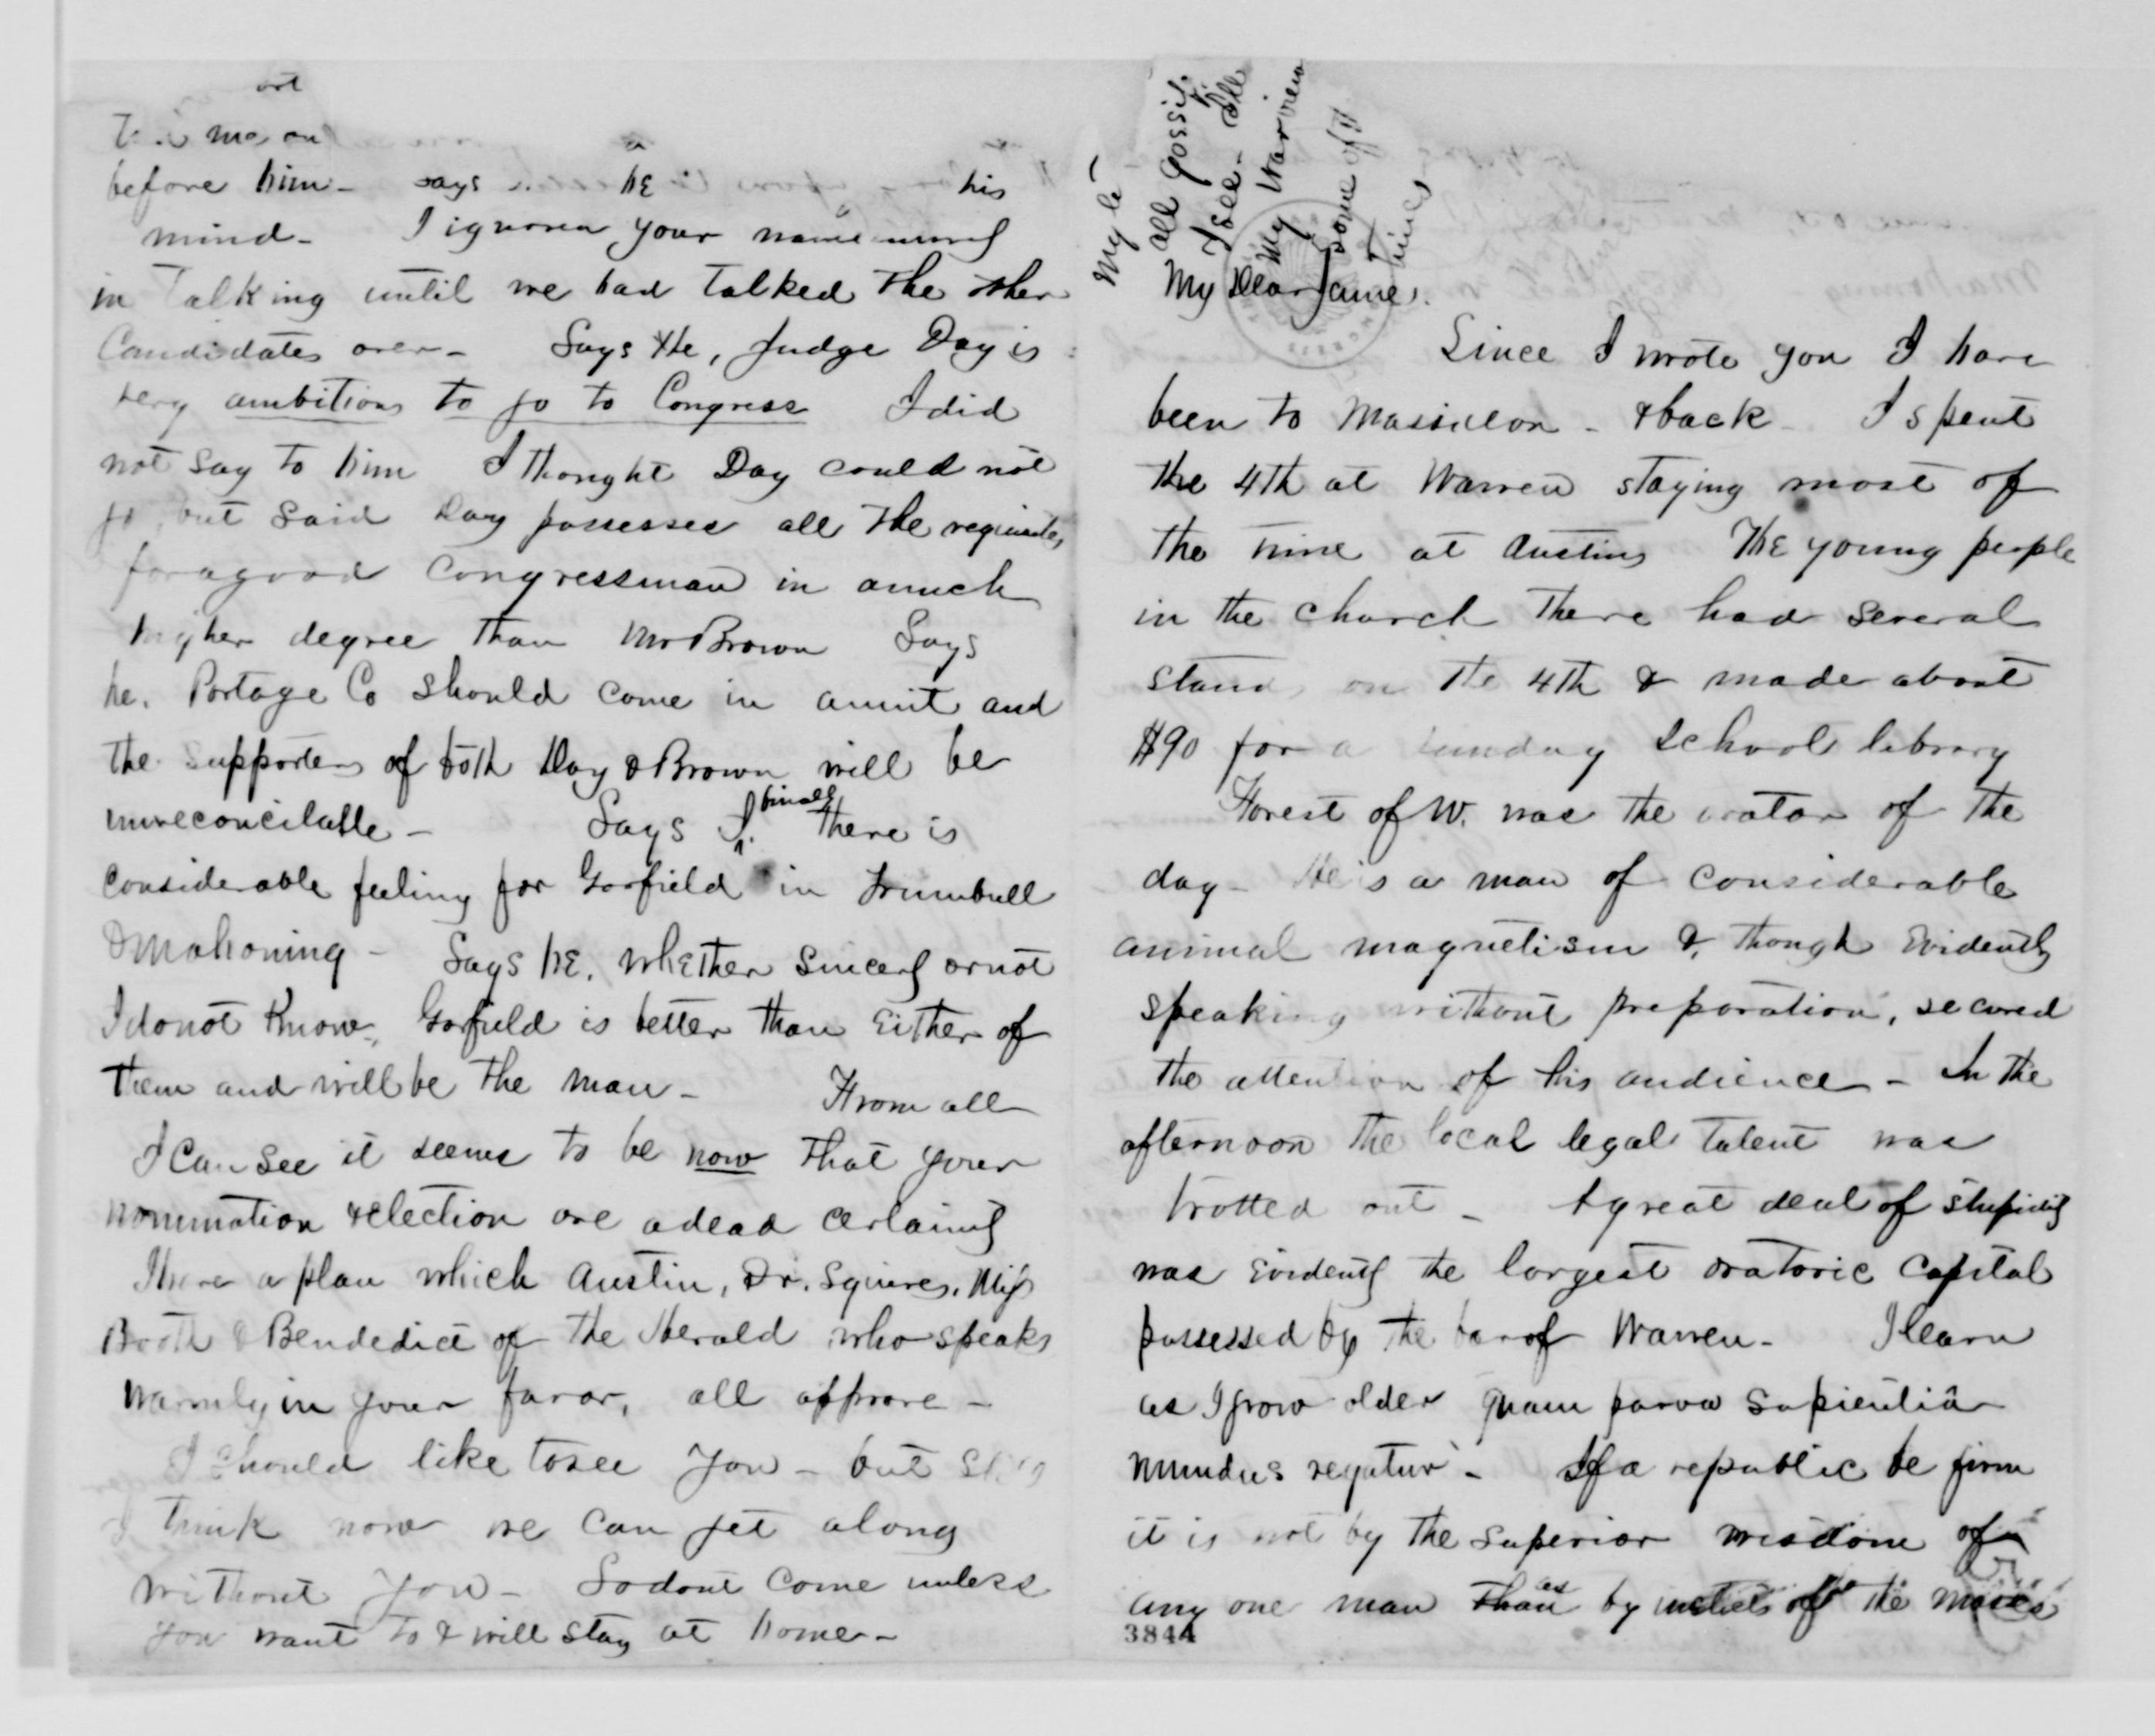 My Dear James.
Since I wrote you I have
been to Massillon - & back - I spent
the 4th at Warren staying most of
the time at Austins The young people
in the church there had several
stands on the 4th & made about
$90 for a sunday school library
Forest of W. was the orator of the
day - He is a man of considerable
animal magnetism &, though evidently
speaking without preparation, secured
the attention of his audience - In the
afternoon the local legal talent was
trotted out - A great deal of stupidity
was evidently the largest oratoric capital
possessed by the bar of Warren - I learn
as I grow older quam parva sapientiâ
mundus regatur - If a republic be firm
it is not by the superior wisdom of
any one man as by of the masses
3844
My le
all gossip.
I see - Ill
My War views
some of
times
before him - says he his
mind - I ignored your name
in talking until we had talked the other
Candidates over - Says He, Judge Day is
very ambitious to go to Congress I did
not say to him I thought Day could not
go, but said Day possesses all the requisites
for a good Congressman in a much
higher degree than Mr Brown Says
he. Portage Co should come in a unit and
the supporters of both Day & Brown will be
unreconcilable - Says I. finally there is
considerable feeling for Garfield in Trumbull
& Mahoning - Says he. whether sincerely or not
I do not know, Garfield is better than either of
them and will be the man - From all
I can see it seems to be now that your
nomination & election are a dead certainty
I have a plan which Austin, Dr. Squires,
Booth & Bendedict of the Herald who speaks
warmly in your favor, all approve -
I should like to see you - but
I think now we can get along
without you - So dont come unless
you want to & will stay at home -